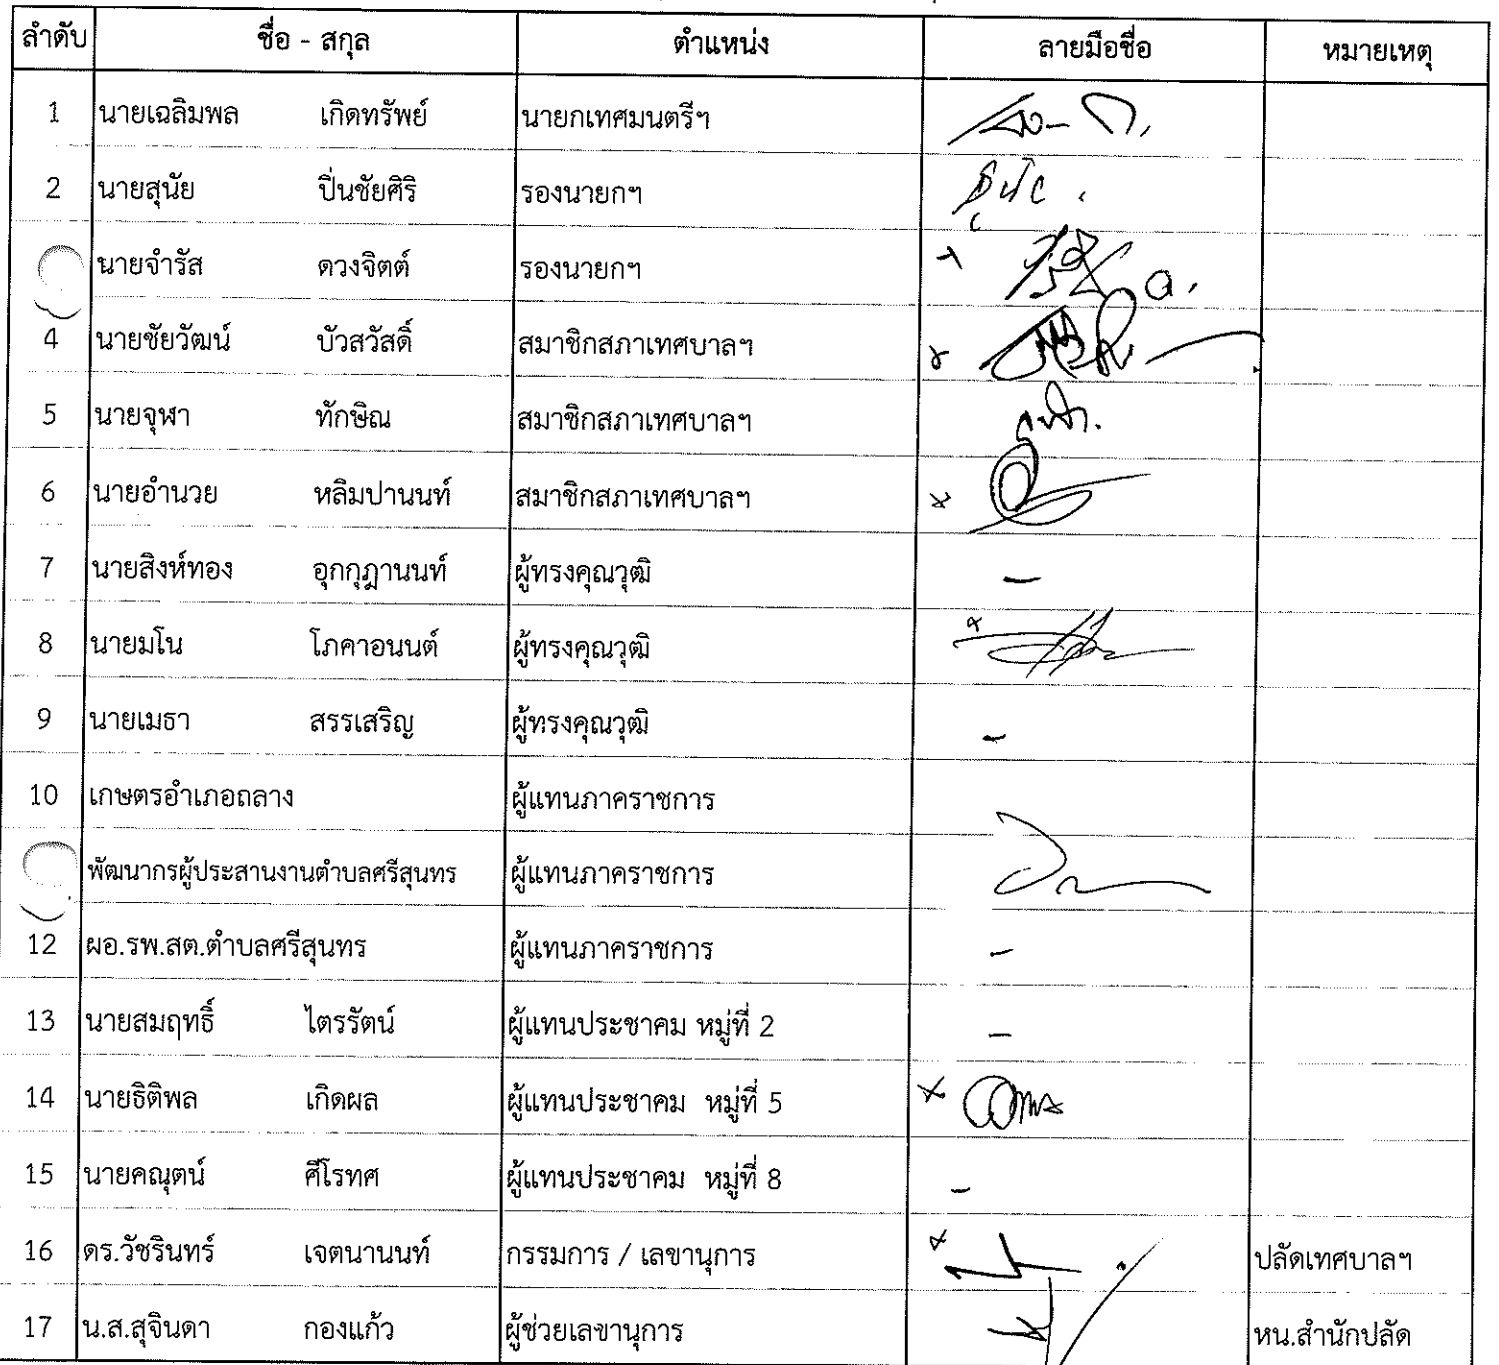 ลำดับ ชื่อ - สกุล ตำแหน่ง ลายมือชื่อ หมายเหตุ
1 นายเฉลิมพล เกิดทรัพย์ นายกเทศมนตรีฯ
2 นายสุนัย ปิ่นชัยศิริ รองนายกฯ
นายจำรัส ดวงจิตต์ รองนายกฯ
4 นายชัยวัฒน์ บัวสวัสดิ์ สมาชิกสภาเทศบาลฯ
5 นายจุฬา ทักษิณ สมาชิกสภาเทศบาลฯ
6 นายอำนวย หลิมปานนท์ สมาชิกสภาเทศบาลฯ
7 นายสิงห์ทอง อุกกุฎานนท์ ผู้ทรงคุณวุฒิ -
8 นายมโน โภคาอนนต์ ผู้ทรงคุณวุฒิ
9 นายเมธา สรรเสริญ ผู้ทรงคุณวุฒิ -
10 เกษตรอำเภอถลาง ผู้แทนภาคราชการ
พัฒนากรผู้ประสานงานตำบลศรีสุนทร ผู้แทนภาคราชการ
12 ผอ.รพ.สต.ตำบลศรีสุนทร ผู้แทนภาคราชการ -
13 นายสมฤทธิ์ ไตรรัตน์ ผู้แทนประชาคม หมู่ที่ 2 -
14 นายธิติพล เกิดผล ผู้แทนประชาคม หมู่ที่ 5
15 นายคณุตน์ ศีโรทศ ผู้แทนประชาคม หมู่ที่ 8 -
16 ดร.วัชรินทร์ เจตนานนท์ กรรมการ / เลขานุการ ปลัดเทศบาลฯ
17 น.ส.สุจินดา กองแก้ว ผู้ช่วยเลขานุการ หน.สำนักปลัด